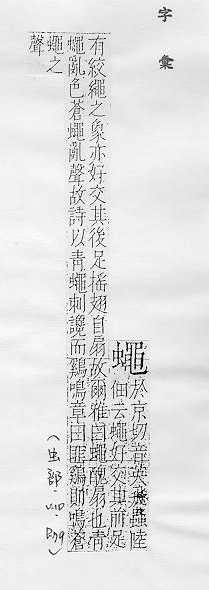 字彙
蠅 於京切音英飛蟲陸
佃云蠅好交其前足
有絞繩之象亦好交其後足搖翅自扇故爾雅曰蠅醜扇也靑
蠅亂色蒼蠅亂聲故詩以靑蠅刺讒而鷄鳴章曰匪鷄則鳴蒼
蠅之
聲
(虫部